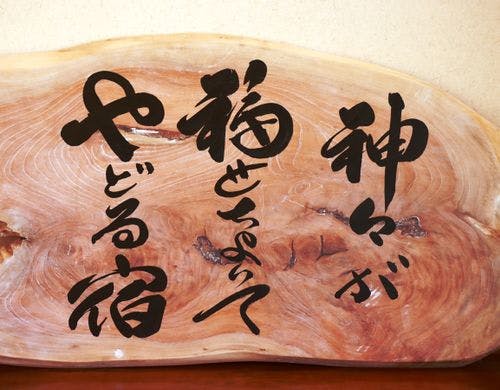 神々が
福せおいて
やどる宿